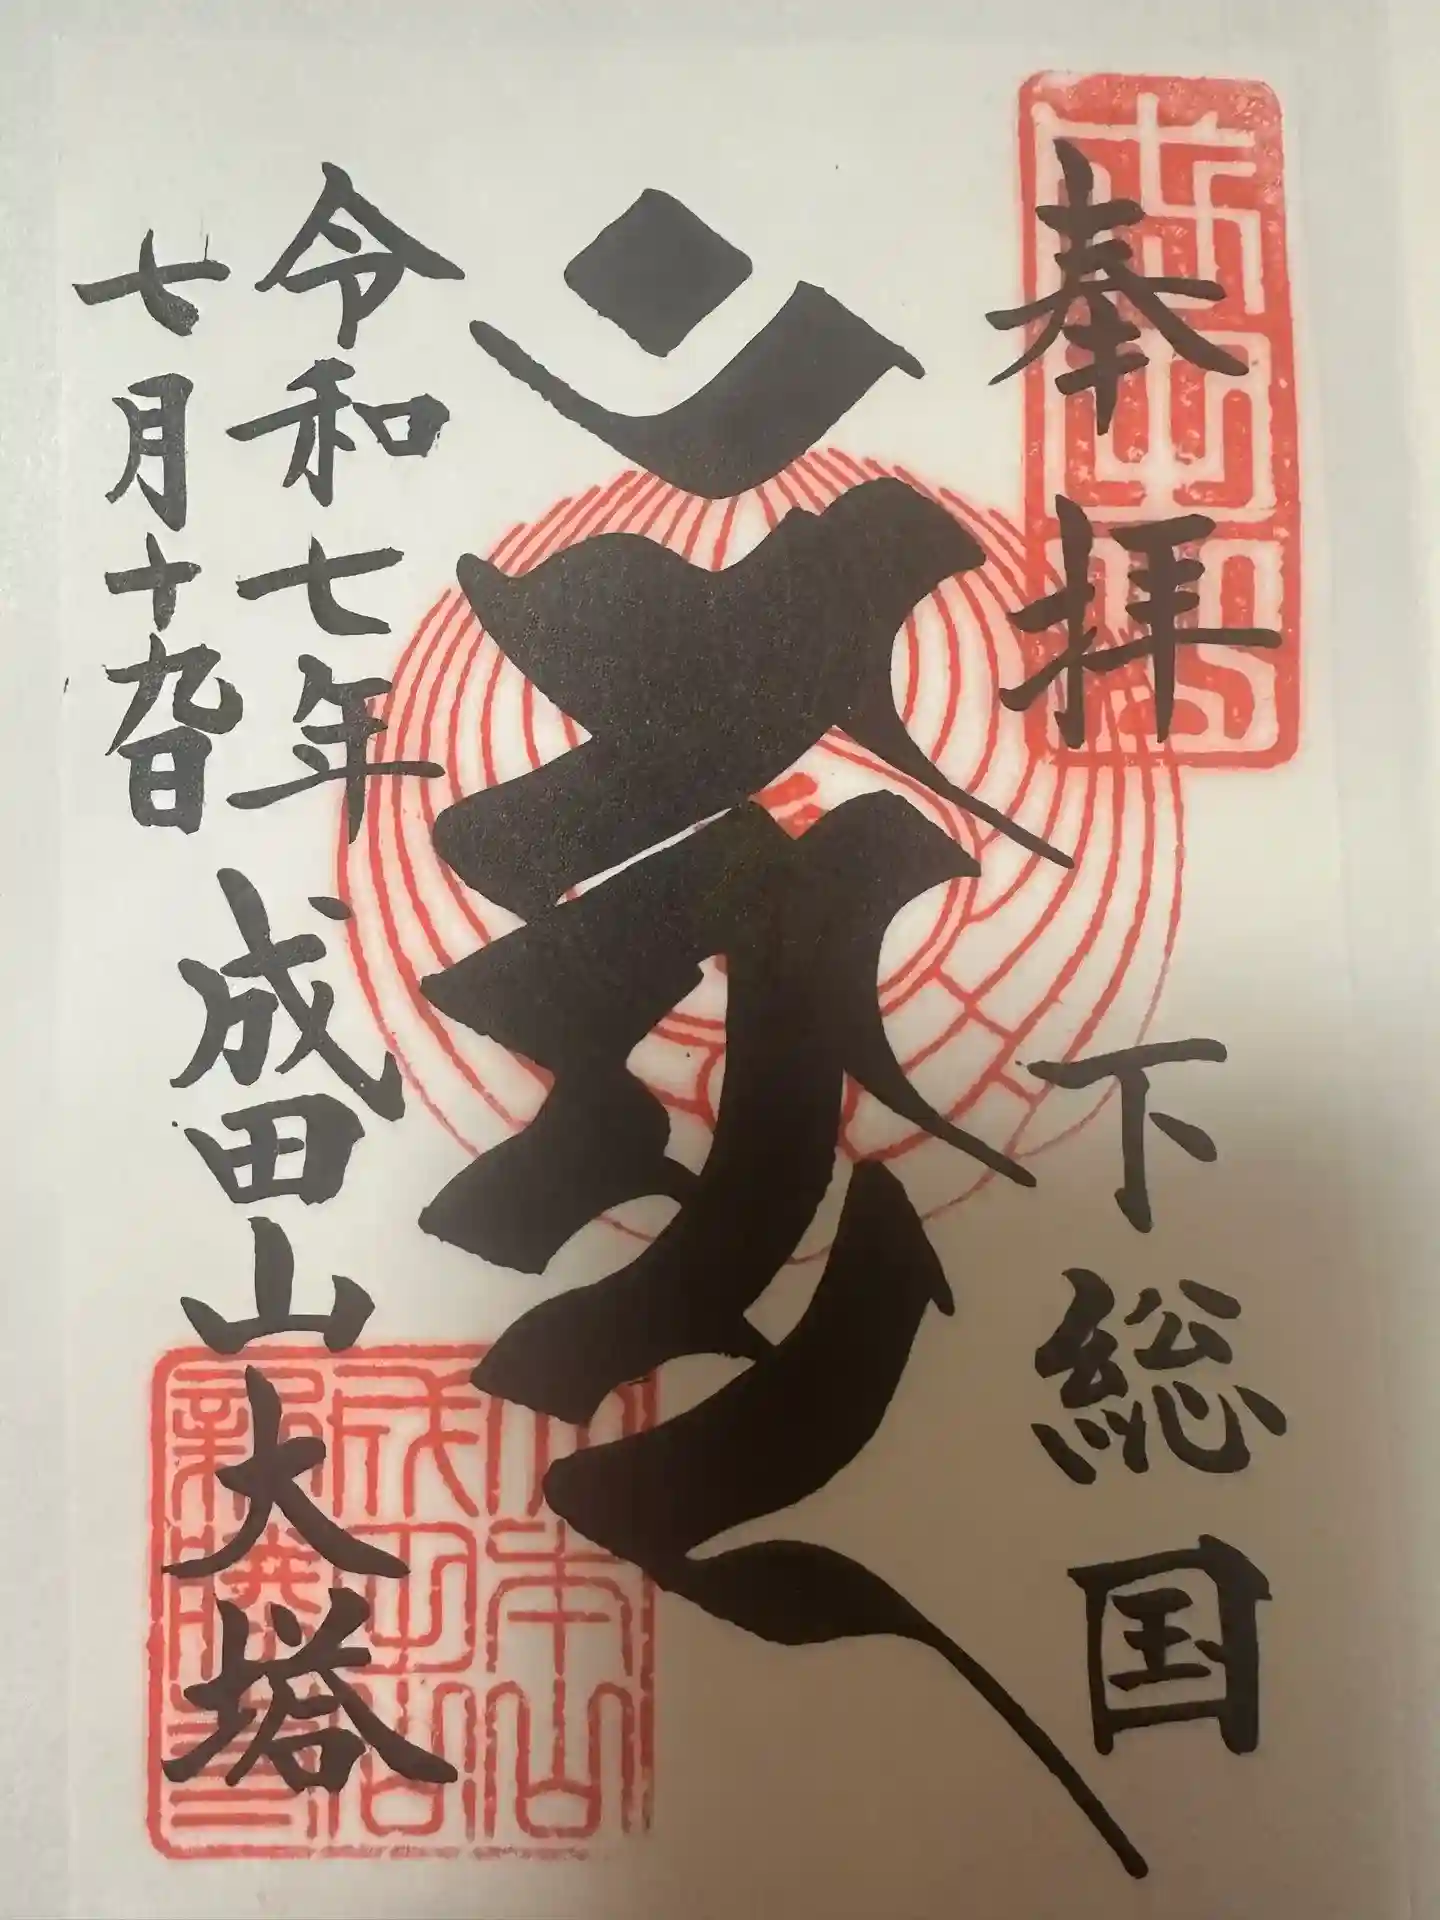 奉拝
下総国
令和七年
七月十九日
成田山大塔